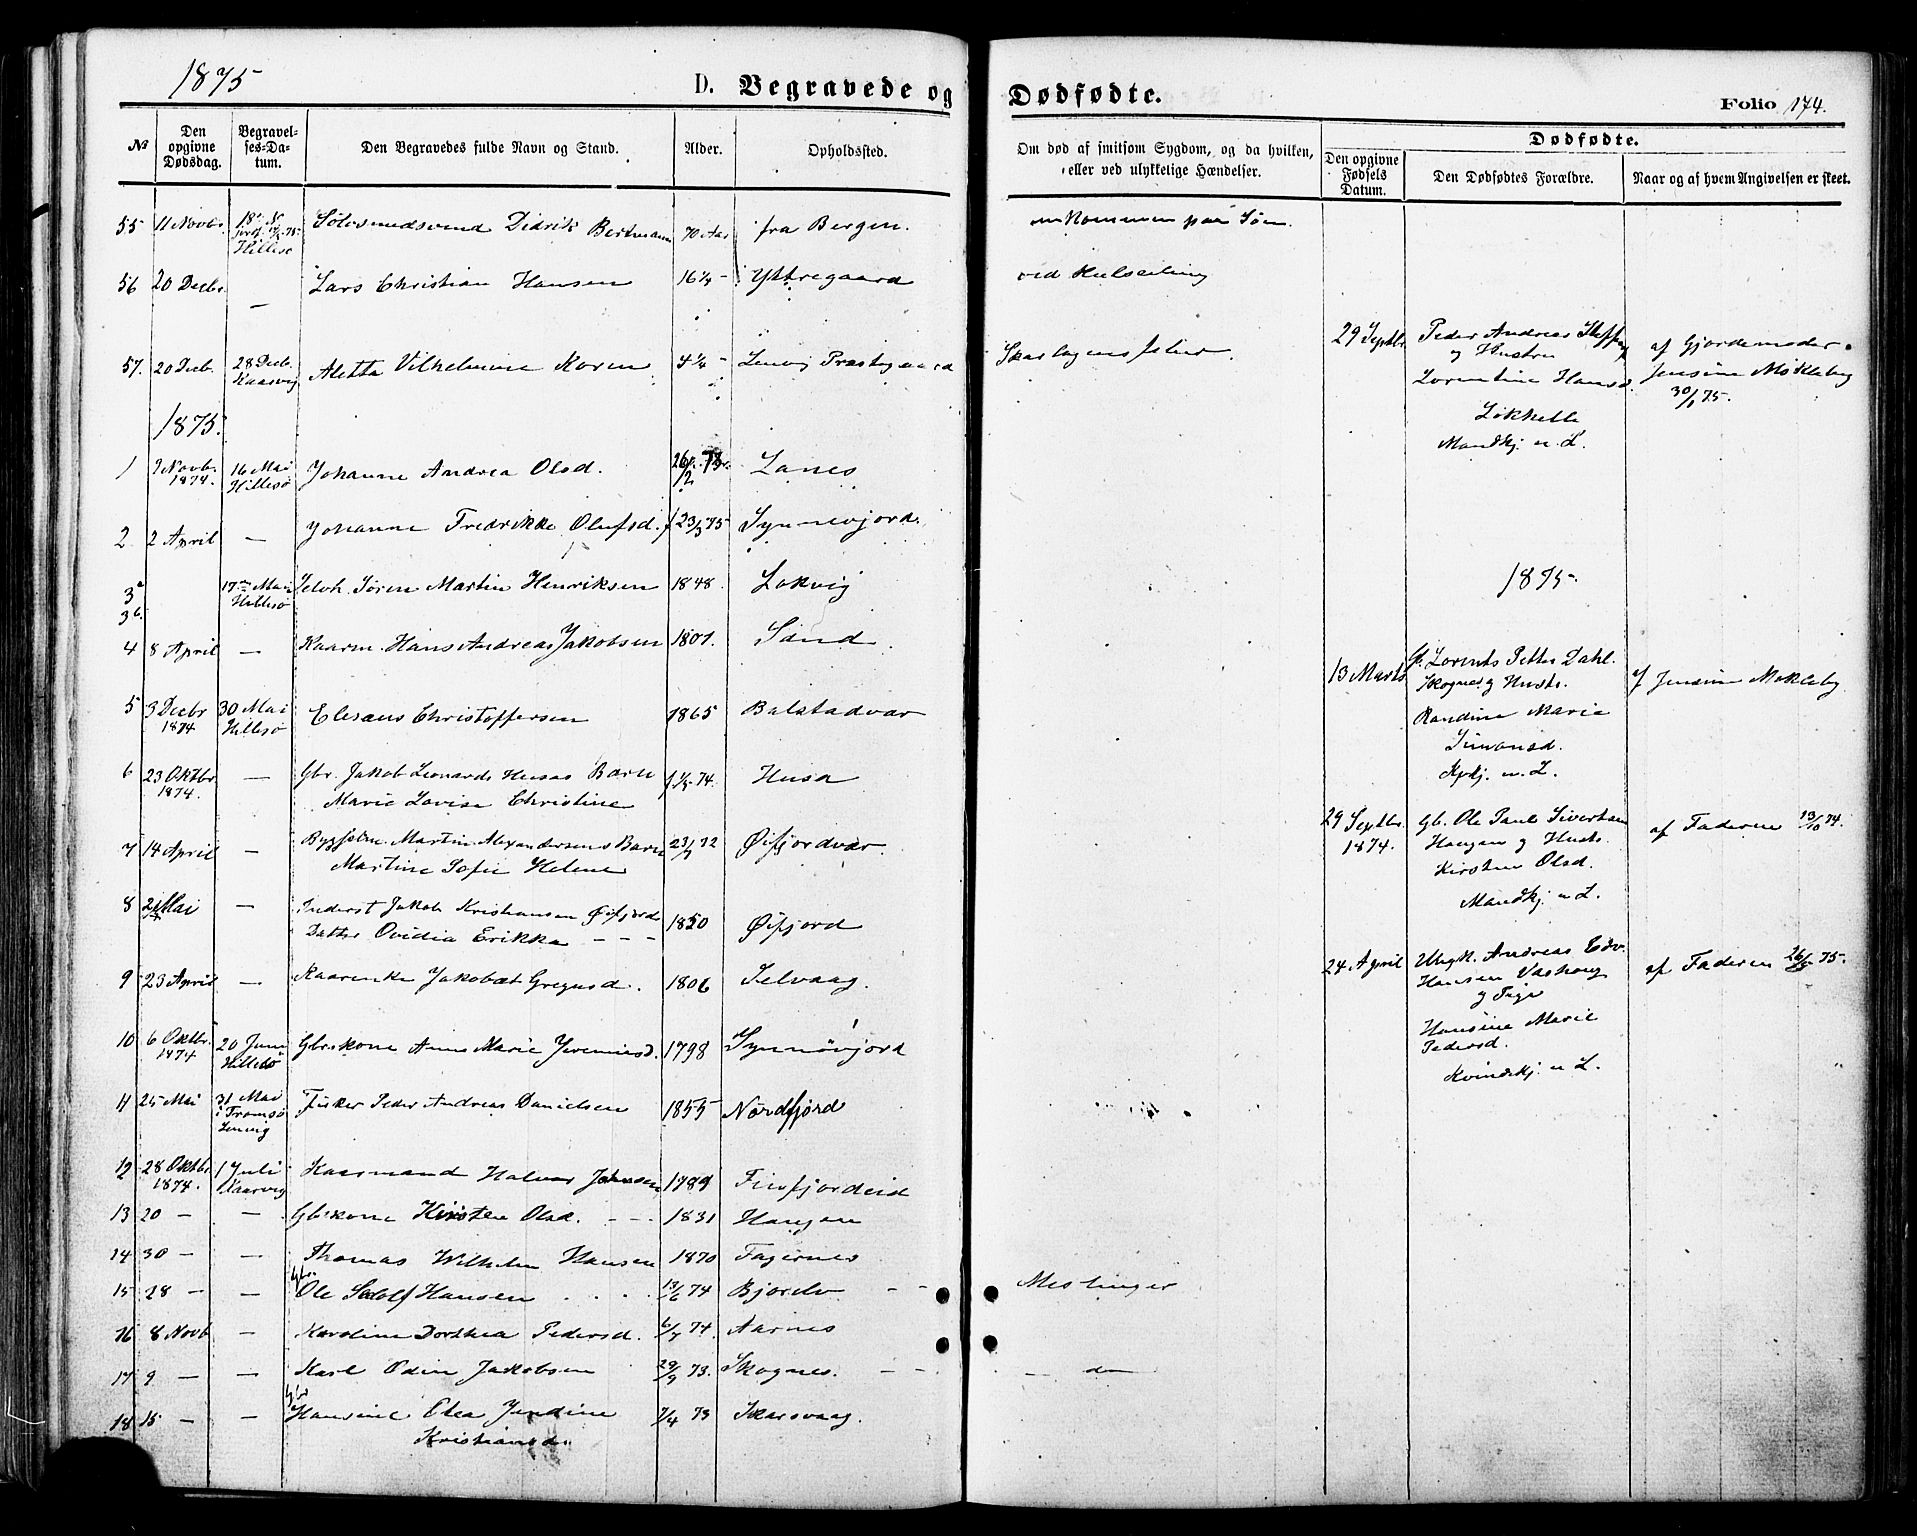 1875
D. Begravede og Dødfødte.
Folio 174.
№
Den opgivne Dødsdag.
Begravelses-Datum.
Den Begravedes fulde Navn og Stand.
Alder.
Opholdssted.
Om død af smitsom Sygdom, og da hvilken, eller ved ulykkelige Hændelser.
Dødfødte.
Den opgivne Fødsels Datum.
Den Dødfødtes Forældre.
Naar og af hvem Angivelsen er skeet.
55 11 Novbr. Hillesø Sølvsmedsvend Didrik 70 Aar fra Bergen. omkommen paa Søen
56 20 Decbr — Lars Christian Hansen 16 ¼ – Yttregaard ved Kulseiling
57. 20 Decb. 28 Decb. Kaarvig Aletta Vilhelmine Koren 4 ¼ – Lenvig Præstegaard Skarlagensfeber.
1875.
1 Novb. 1874. 16 Mai Hillesø Johanne Andrea Olsd. Lanes
2 2 April — Johanne Fredrikke Olufsd. f 23/3 75 Synnøvjord
3a 17de Mai Hillesø Selvh. Søren Martin Henriksen 1848. Løkvig
3b.
4 8 April — Kaarm. Hans Andreas Jakobsen 1807. Sand
5 3 Decbr 1874 30 Mai Hillesø Elesæus Christoffersen 1865 Balstadvær
6 23 Oktbr. 1874. — Gbr. Jakob Leonards Husas Barn
Marie Lovise Christine 74. Husa
7 14 April — Martin Alexandersens Barn
Martine Sofie Helene 72 Øifjordvær.
8 Mai — Inderst Jakob Kristiansen Øifjord
Datter Ovidia Erikka – – – 1850 Øifjord
9 23 April — Kaarenke Jakobæa Gregusd. 1806 Selvaag.
10 6 Oktbr. 1874 20 Juni Hillesø Gbr.kone Anne Marie Jeremiasd. 1798 Synnøvjord
11 25 Mai 31 Mai i Tromsø Lenvig Fisker Peder Andreas Danielsen 1855 Nordfjord
12 28 Oktbr 1874. 1 Juli Kaarvig Kaarmand Halvor Johnsen 1789 Finfjordeid
13 20 — — Gbr.kone Kirsten Olsd. – – – 1831 Haugen
14 30 — — Thomas Wilhelm Hansen 1870 Fagernes
15 28 — — Gbr. Ole Hansen . . . . 13/6 74 Bjorelv – – Meslinger
16 8 Novb — Karoline Dorthea Pedersd. 6/7 74 Aarnes
17 9 — — Karl Odin Jakobsen 29/9 73. Skognes. – – – do
18 15 — — Hansine Olea Jendine
Kristiansd. 7/4 73 Skarsvaag.
29 Septbr. Peder Andreas Steff
og Hustru
Lorentine Hansd.
Løkhelle
Mandkj. u. L.
af Gjordemoder
Jensine Møkleby
75.
1875.
13 Marts Lorents Petter Dahl.
Skognes og Hustr.
Randine Marie
Simonsd.
u. L.
af Jensine Møkleby
29 Septbr. 1874. Gb. Ole Paul Sivertsen
Haugen og Hustr.
Kirsten Olsd.
Mandkj u L.
af Faderen 13/10 74.
24 April Ungk. Andreas Edv.
Hansen Vashaug
og Pige
Hansine Marie
Pedersd.
Kvindekj. u L.
af Faderen 75.